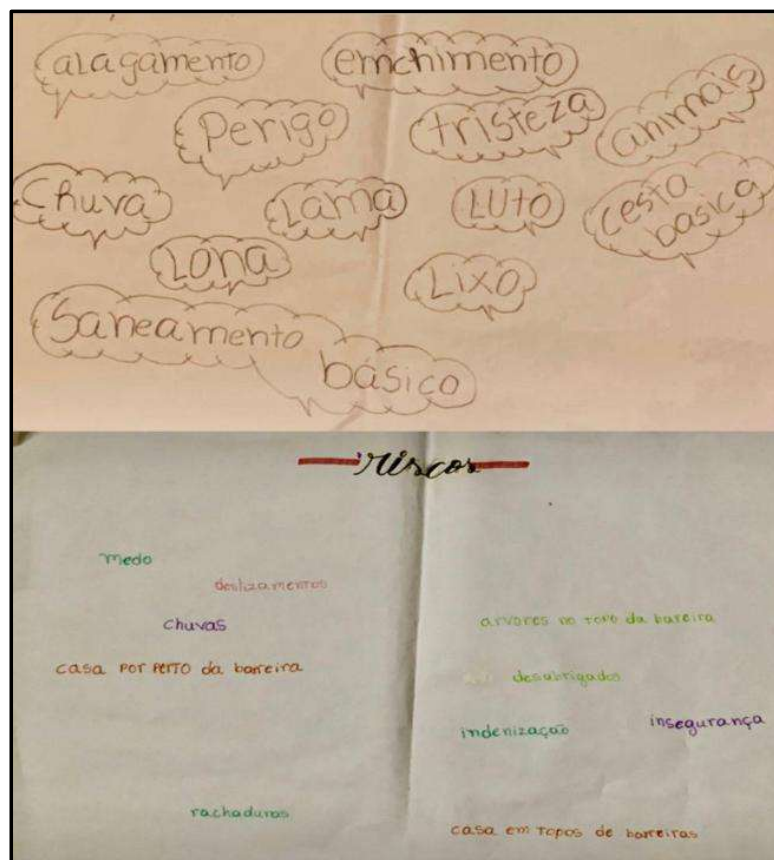 alagamento
emchimento
Perigo
tristeza
animais
Chuva
Lama
Luto
cesta
basica
Lona
Lixo
Saneamento
básico
riscos
medo
deslizamentos
chuvas
arvores no topo da bareira
casa por perto da barreira
desabrigados
indenização
insegurança
rachaduras
casa em topos de barreiras